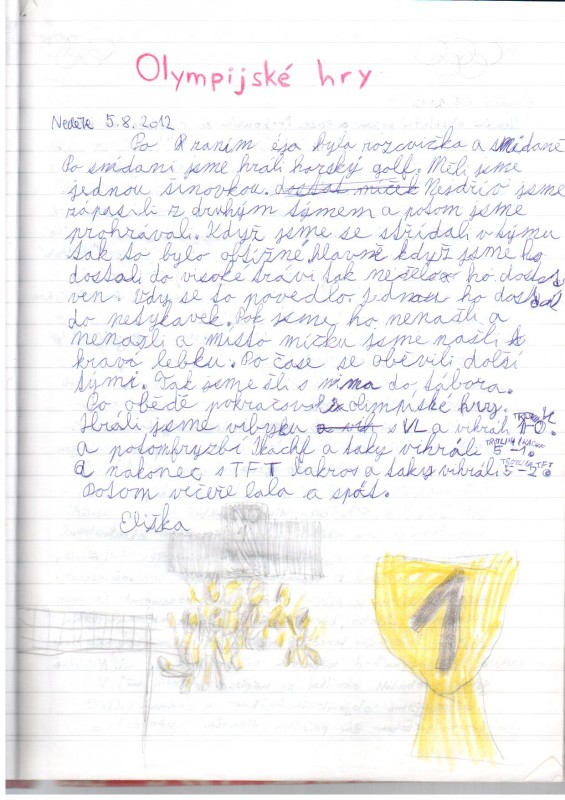 Olympijské hry
Neděle 5.8.2012
Po ranim byla rozcvička a snídaně
Po snídani jsme hráli horský golf. Měli jsme
jednou šinovkou. dostat míček Nesdřív jsme
zápasili z druhým týmem a potom jsme
prohrávali. Když jsme se střídali v týmu
tak to bylo obtížné hlavně když jsme ho
dostali do visoké trávi tak nešlo ho dostat
ven. Vdy se to povedlo jednou ho dostal
do netykavek. Pak jsme ho nenašli a
nenažli a místo míčku jsme našli
kraví lebku. Po čase se oběvili dolší
tými. Tak jsme šli s nima do tábora.
Po obědě pokračovali olympijské hry.
Hráli jsme vibyku s VL a vihráli 1-0.
a potom fryzbí a taky vihráli 5-1.
a nakonec s TFT lakros a taky vihráli 5-2.
Potom večeře lala a spát.
Eliška
1